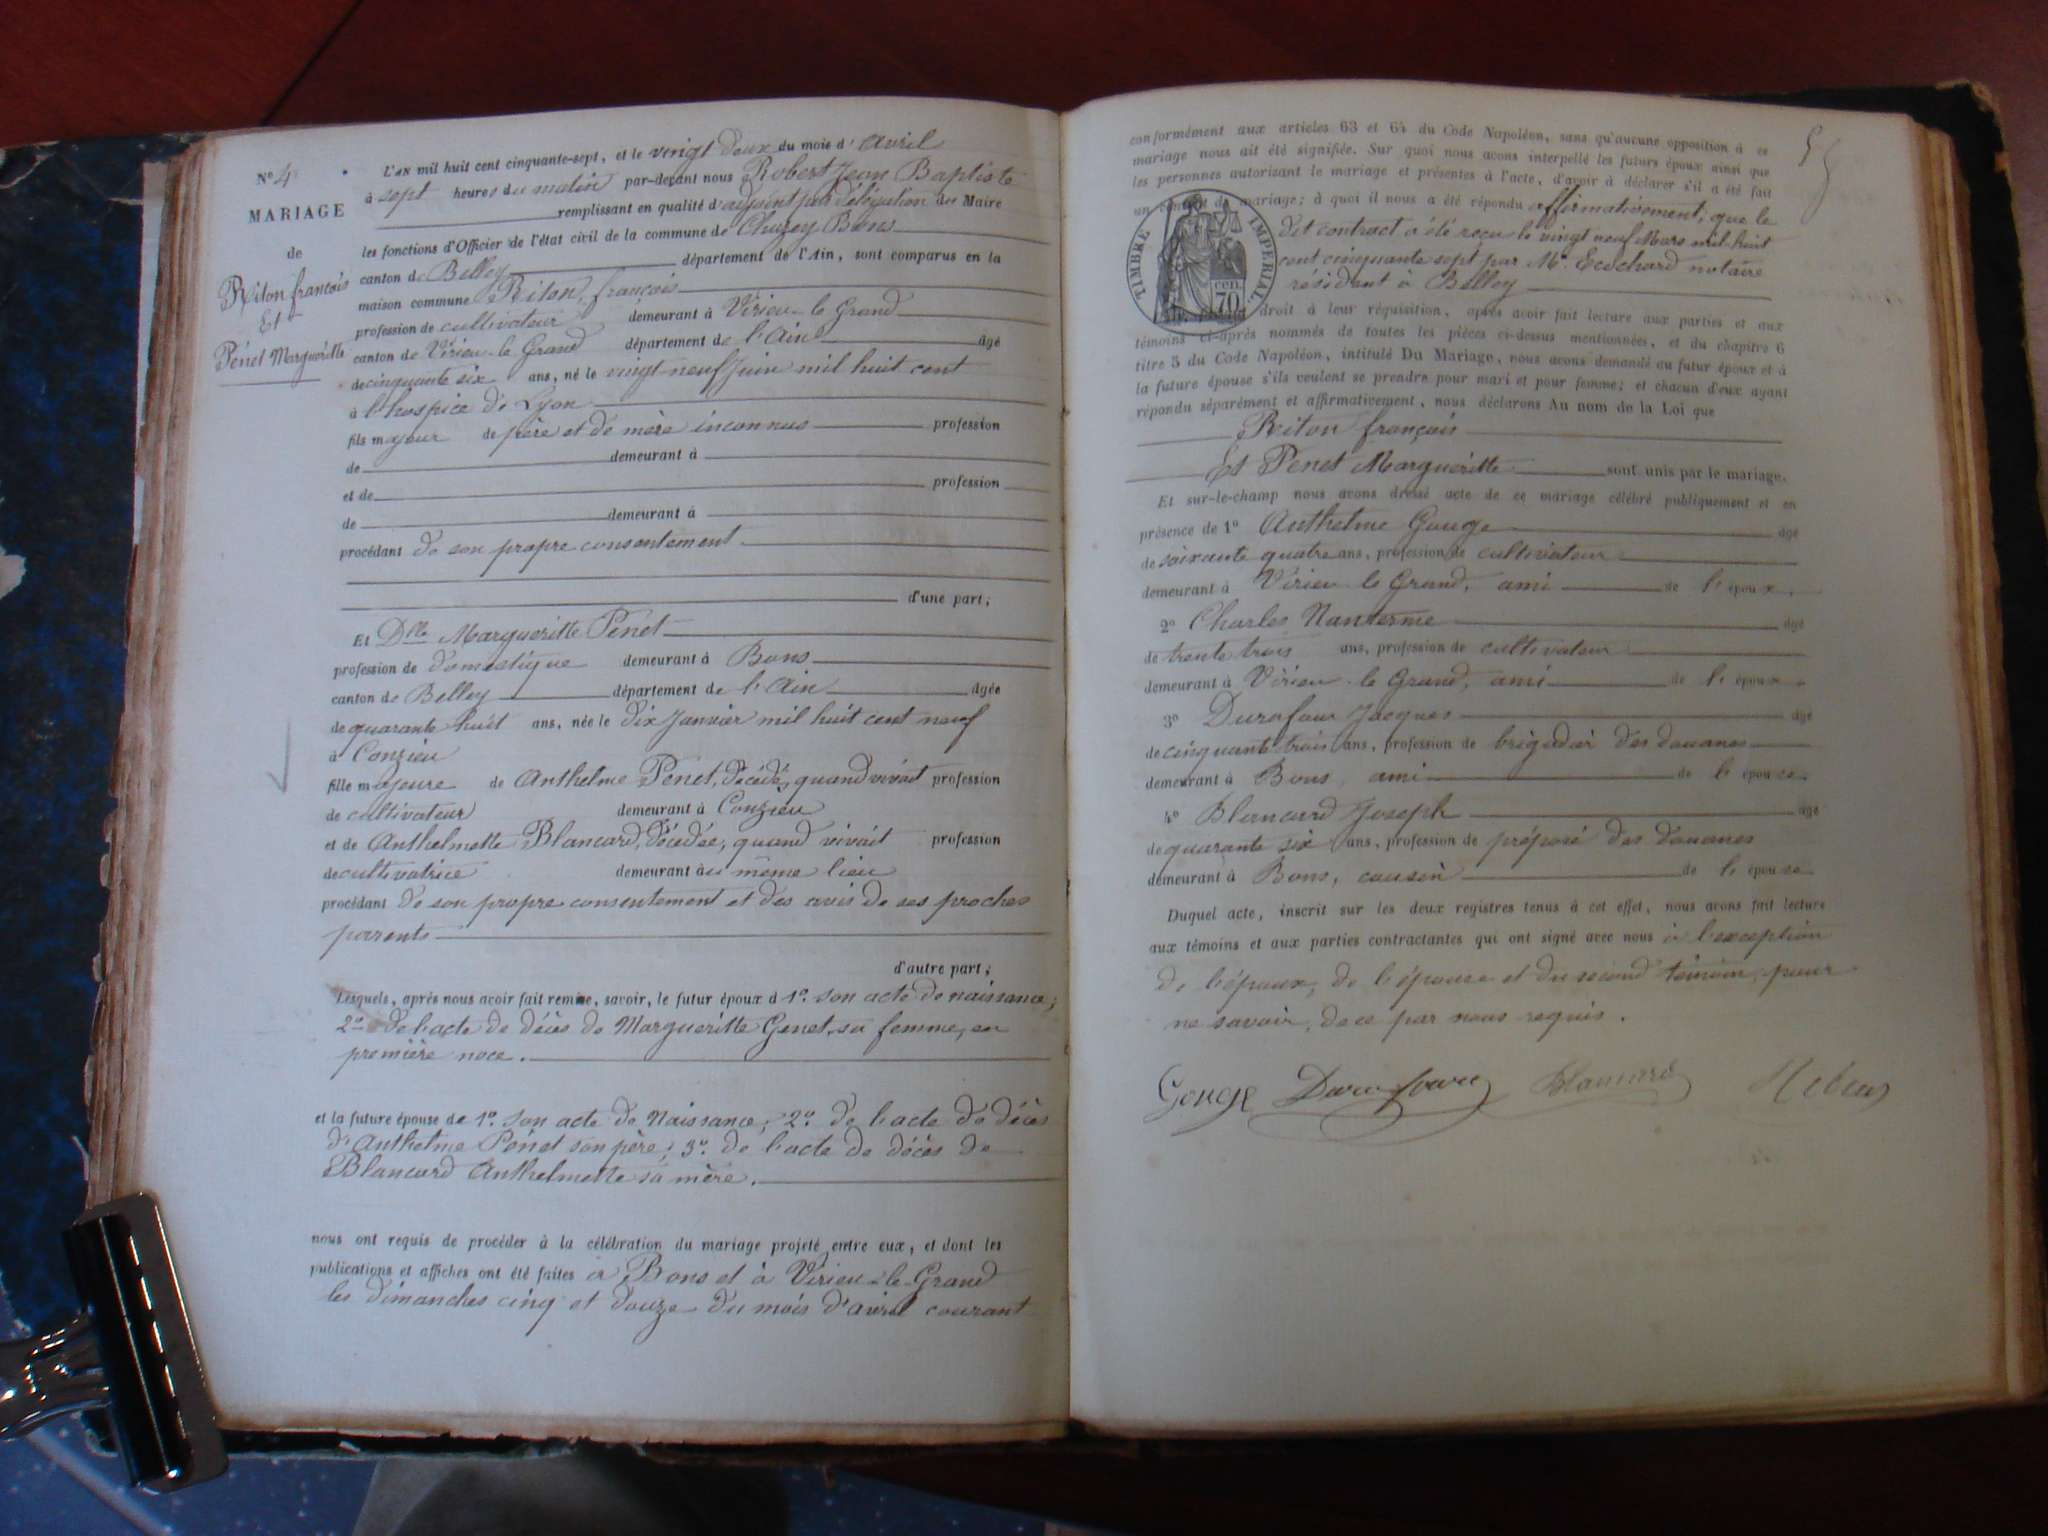 N° 4
MARIAGE
de
Riton françois
Et
Penet Margueritte
L'an mil huit cent cinquante-sept, et le vingt deux du mois d'avril
à sept heures du matin par-devant nous Robert Jean Baptiste
remplissant en qualité d'adjoint par délégation du Maire
les fonctions d'Officier de l'état civil de la commune de Chazey Bons
canton de Belley département de l'Ain, sont comparus en la
maison commune Riton, françois
profession de cultivateur demeurant à Virieu-le Grand
canton de Virieu-le Grand département de l'Ain âgé
de cinquante six ans, né le vingt-neuf Juin mil huit cent
à l'hospice de Lyon
fils majeur de père et de mère inconnus profession
de demeurant à
et de profession
de demeurant à
procédant de son propre consentement
d'une part;
Et Dlle Margueritte Penet
profession de domestique demeurant à Bons
canton de Belley département de l'Ain âgée
de quarante huit ans, née le dix Janvier mil huit cent neuf
à Conzieu
fille majeure de Anthelme Penet, décédé, quand vivait profession
de cultivateur demeurant à Conzieu
et de Anthelmette Blancard, décédée, quand vivait profession
de cultivatrice demeurant au même lieu
procédant de son propre consentement et des avis de ses proches
parents
d'autre part;
Lesquels, après nous avoir fait remise, savoir, le futur époux d 1° son acte de naissance;
2° de l'acte de décès de Margueritte Genet, sa femme, en
première noce.
et la future épouse de 1° son acte de Naissance; 2° de l'acte de décès
d'Anthelme Penet son père; 3° de l'acte de décès de
Blancard Anthelmette sa mère.
nous ont requis de procéder à la célébration du mariage projeté entre eux, et dont les
publications et affiches ont été faites à Bons et à Virieu-le-Grand
les dimanches cinq et douze du mois d'avril courant
conformément aux articles 63 et 64 du Code Napoléon, sans qu'aucune opposition à ce
mariage nous ait été signifiée. Sur quoi nous avons interpellé les futurs époux ainsi que
les personnes autorisant le mariage et présentes à l'acte, d'avoir à déclarer s'il a été fait
un contrat de mariage; à quoi il nous a été répondu affermativement; que le
dit contract a été reçu le vingt neuf Mars mil huit
cent cinquante sept par Me. Ecochard notaire
résidant à Belley
TIMBRE IMPERIAL.
70 cen.
droit à leur réquisition, après avoir fait lecture aux parties et aux
témoins ci-après nommés de toutes les pièces ci-dessus mentionnées, et du chapitre 6
titre 5 du Code Napoléon, intitulé Du Mariage, nous avons demandé au futur époux et à
la future épouse s'ils veulent se prendre pour mari et pour femme; et chacun d'eux ayant
répondu séparément et affirmativement, nous déclarons Au nom de la Loi que
Riton françois
Et Penet Margueritte sont unis par le mariage.
Et sur-le-champ nous avons dressé acte de ce mariage célébré publiquement et en
présence de 1° Anthelme Gouge âgé
de soixante quatre ans, profession de cultivateur
demeurant à Virieu-le Grand, ami de l'époux,
2° Charles Nanterme âgé
de trente trois ans, profession de cultivateur
demeurant à Virieu-le Grand, ami de l'époux.
3° Durafour Jacques âgé
de cinquante trois ans, profession de brigadier des douanes
demeurant à Bons, ami de l'épouse.
4° Blancard Joseph âgé
de quarante six ans, profession de préposé des douanes
demeurant à Bons, cousin de l'épouse
Duquel acte, inscrit sur les deux registres tenus à cet effet, nous avons fait lecture
aux témoins et aux parties contractantes qui ont signé avec nous à l'exception
de l'époux, de l'épouse et du second témoin, pour
ne savoir, de ce par nous requis.
Gouge Durafour Blancard